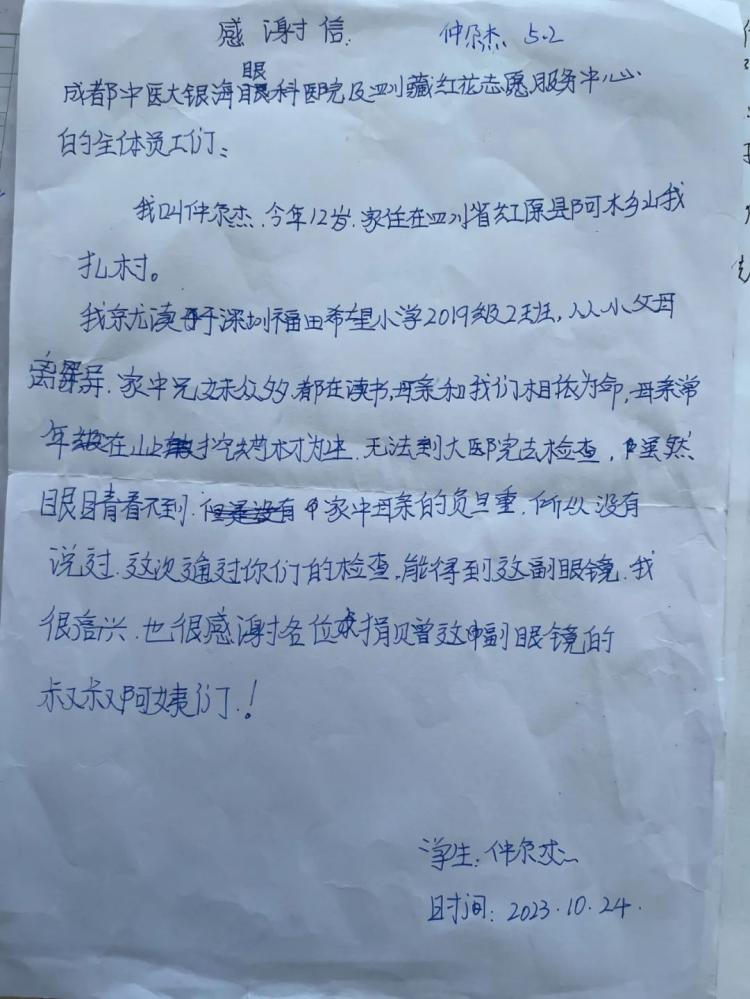 感谢信 仲尕杰 5.2
成都中医大银海眼科医院及四川藏红花志愿服务中心
的全体员工们:
我叫仲尕杰.今年12岁.家住在四川省红原县阿木乡山我
扎村。
我就读于深圳福田希望小学2019级2班,从小父母
离异.家中兄妹众多.都在读书,母亲和我们相依为命,母亲常
年在山上挖药材为生.无法到大医院去检查,虽然
眼睛看不到.家中母亲的负旦重.所以没有
说过.这次通过你们的检查,能得到这副眼镜.我
很高兴.也很感谢各位捐赠这副眼镜的
叔叔阿姨们.!
学生:仲尕杰
时间:2023.10.24.